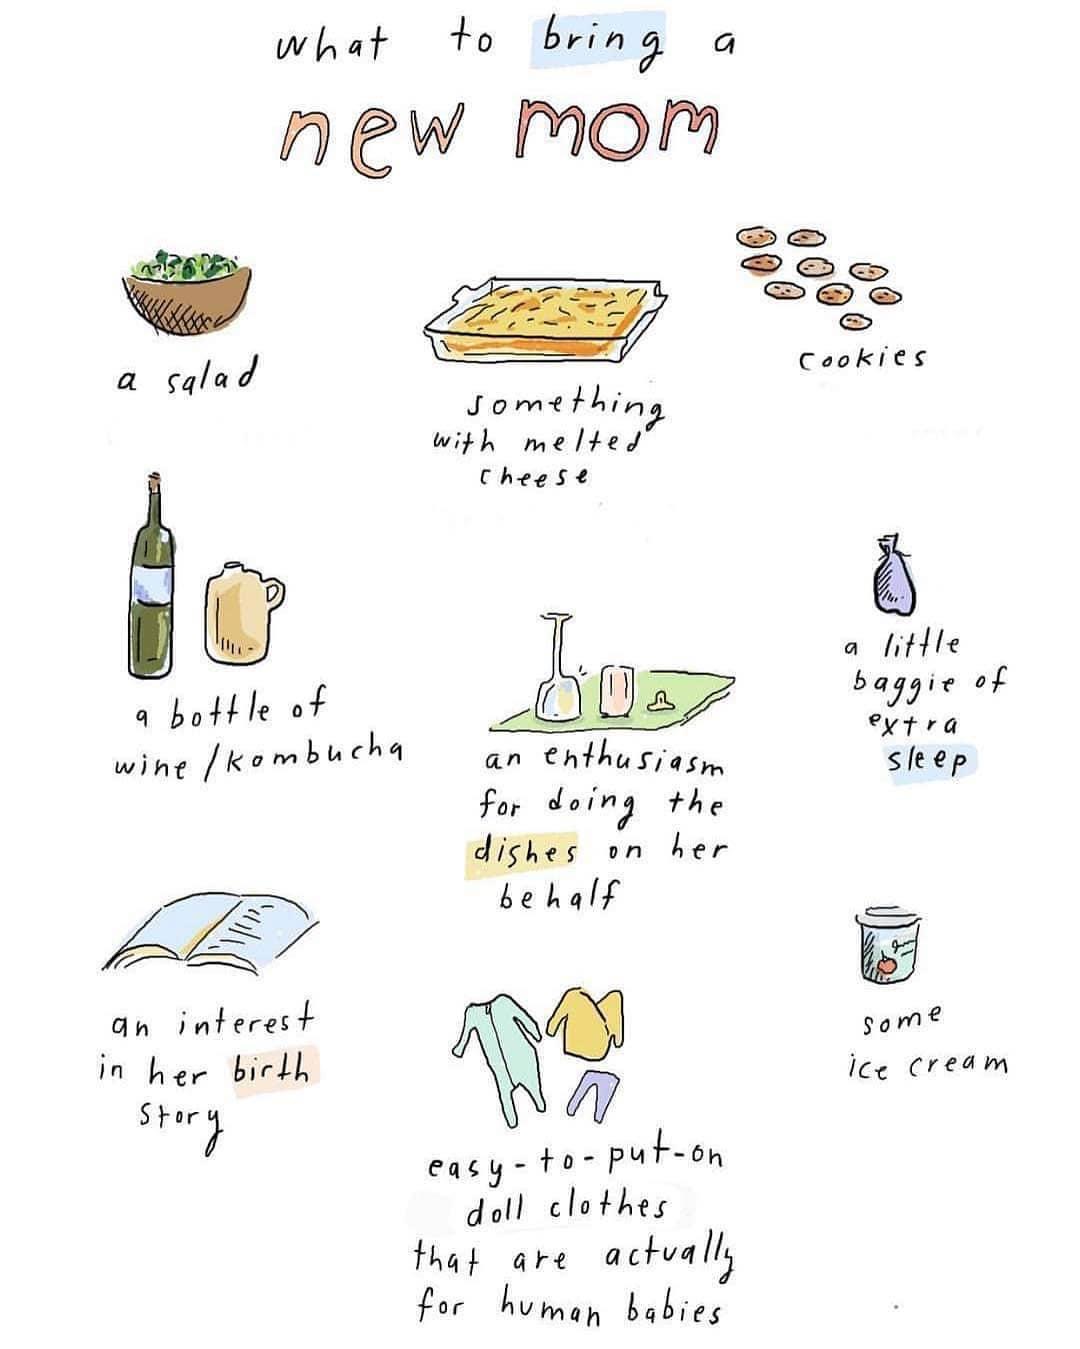 what to bring a
new mom
a salad
something
with melted
cheese
cookies
a bottle of
wine/kombucha
an enthusiasm
for doing the
dishes on her
behalf
a little
baggie of
extra
sleep
an interest
in her birth
story
easy-to-put-on
doll clothes
that are actually
for human babies
some
ice cream